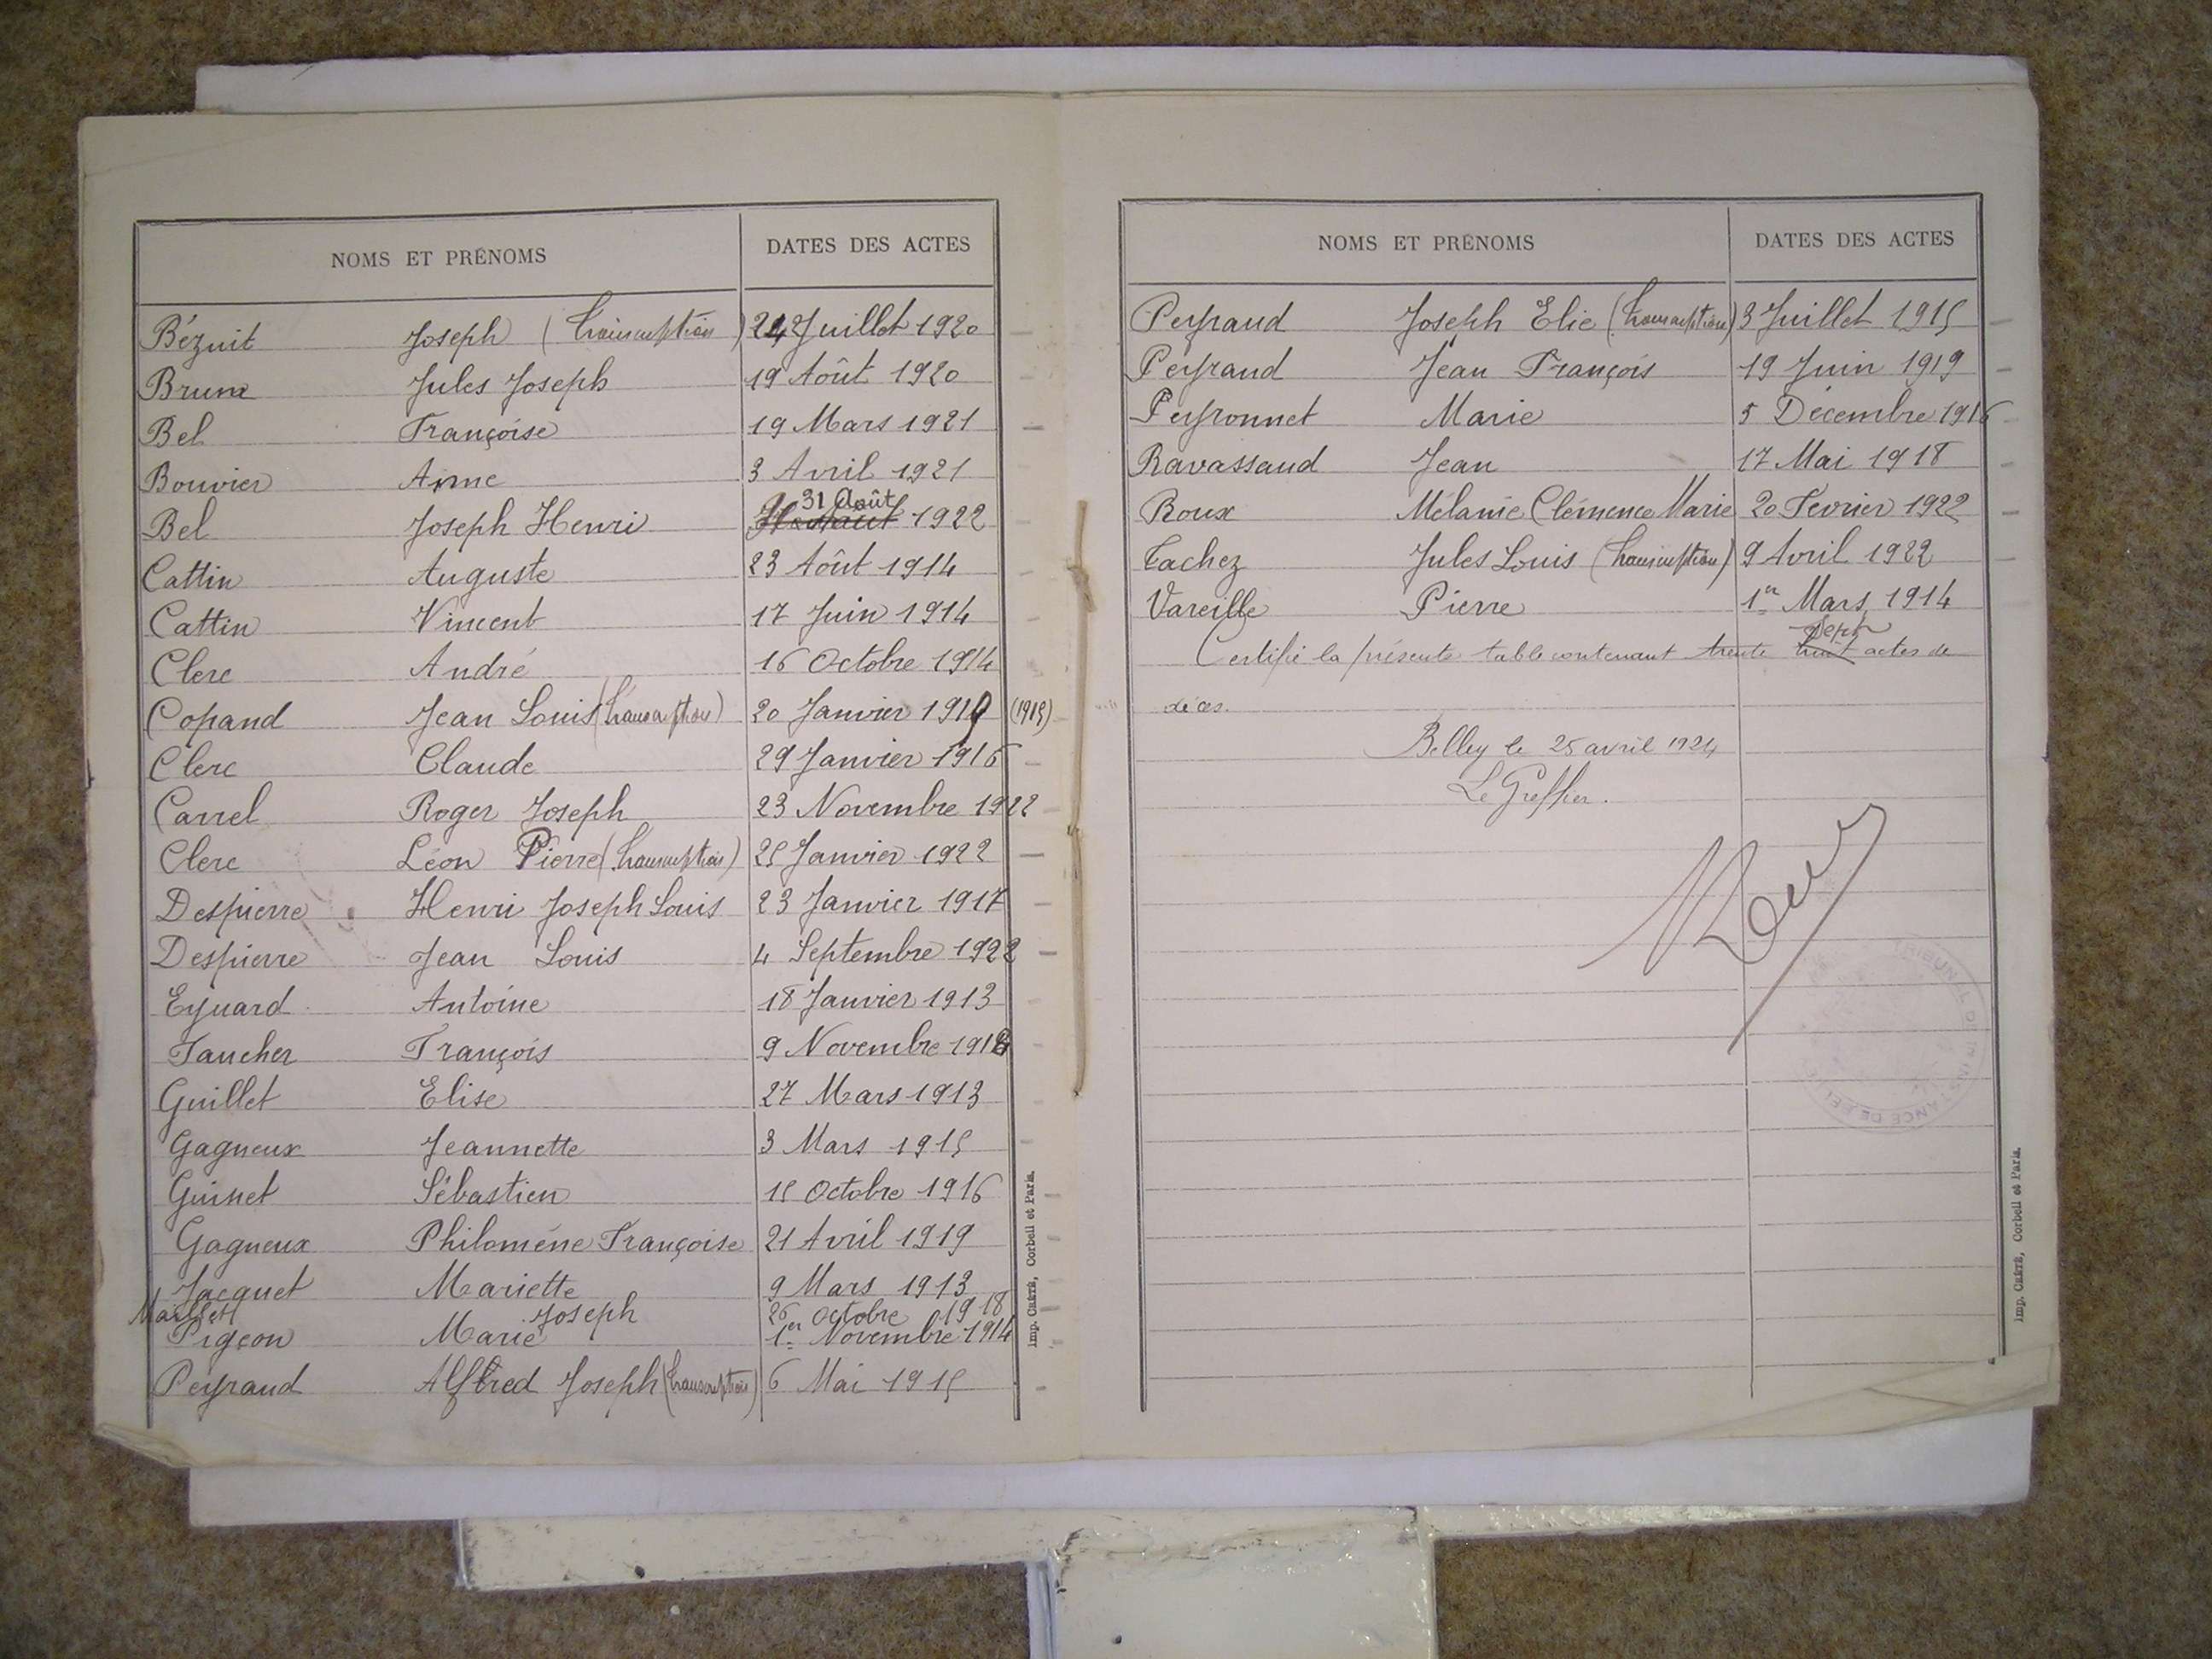 NOMS ET PRÉNOMS DATES DES ACTES
Bézuit Joseph (transcription) 24 Juillet 1920
Brun Jules Joseph 19 Août 1920
Bel Françoise 19 Mars 1921
Bouvier Aimé 3 Avril 1921
31 Août
Bel Joseph Henri 1922
Cattin Auguste 23 Août 1914
Cattin Vincent 17 Juin 1914
Clerc André 16 Octobre 1914
Copand Jean Louis (transcription) 20 Janvier 1919 (1919)
Clerc Claude 29 Janvier 1916
Carrel Roger Joseph 23 Novembre 1922
Clerc Léon Pierre (transcription) 25 Janvier 1922
Despierre Henri Joseph Louis 23 Janvier 1917
Despierre Jean Louis 4 Septembre 1922
Eynard Antoine 18 Janvier 1913
Faucher François 9 Novembre 1918
Guillet Elise 27 Mars 1913
Gagneux Jeannette 3 Mars 1915
Guinet Sébastien 15 Octobre 1916
Gagneux Philomène Françoise 21 Avril 1919
Jacquet Mariette 9 Mars 1913
Maillet Joseph 26 Octobre 1918
Pigeon Marie 1er Novembre 1914
Peyraud Alfred Joseph (transcription) 6 Mai 1915
Imp. Crété, Corbeil et Paris.
NOMS ET PRÉNOMS DATES DES ACTES
Peyraud Joseph Elie (transcription) 3 Juillet 1915
Peyraud Jean François 19 Juin 1919
Peyronnet Marie 5 Décembre 1916
Ravassaud Jean 17 Mai 1918
Roux Mélanie Clémence Marie 20 Fevrier 1922
Tachez Jules Louis (transcription) 9 Avril 1922
Vareille Pierre 1er Mars 1914
sept
Certifié la présente table contenant trente huit actes de
décès.
Belley le 25 avril 1924
Le Greffier.
Roux
TRIBUNAL DE 1re INSTANCE DE BELLEY
Imp. Crété, Corbeil et Paris.